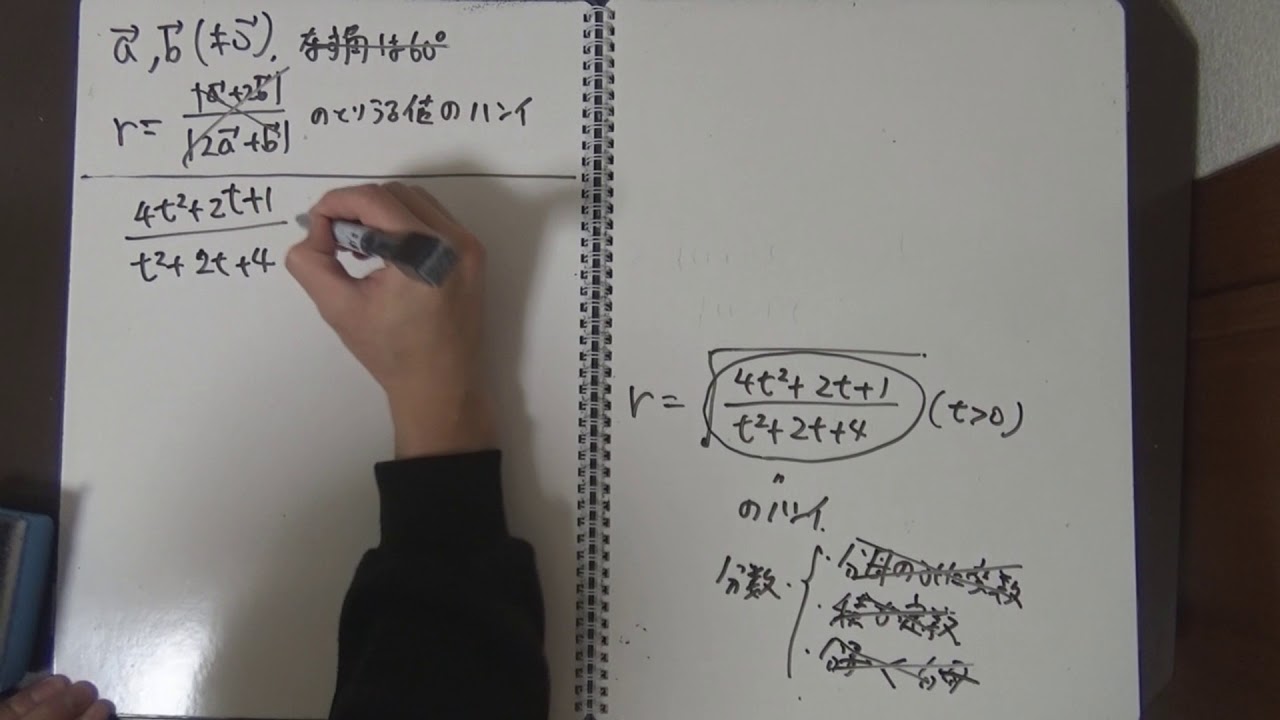 a⃗, b⃗ (≠0⃗). なす角は60°
r = |a⃗+2b⃗| / |2a⃗+b⃗| のとりうる値のハンイ
4t²+2t+1
t²+2t+4
r = √(4t²+2t+1 / t²+2t+4) (t>0)
〃
のハンイ
分数・
・分母の